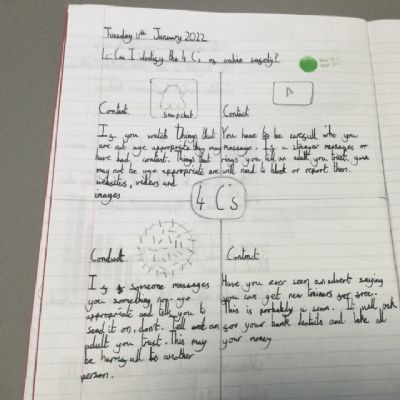 Tuesday 11th January 2022
L.I: Can I identify the 4 C's of online safety?
Content
snapchat
Contact
If you watch things that
are not age appropriate they may
have bad content. Things that
may not be age appropriate are
websites, videos and
images
You have to be carefull who you
message. If a stranger messages or
rings you tell an adult you trust, you
will need to block or report them.
4 C's
Conduct
If someone messages
you something non-age
appropriate and tells you to
send it on, don't. Tell an
adult you trust. This may
be harmful to another
person.
Contract
Have you ever seen an advert saying
you can get new trainers for free.
This is probably a scam. It will ask
for your bank details and take all
your money